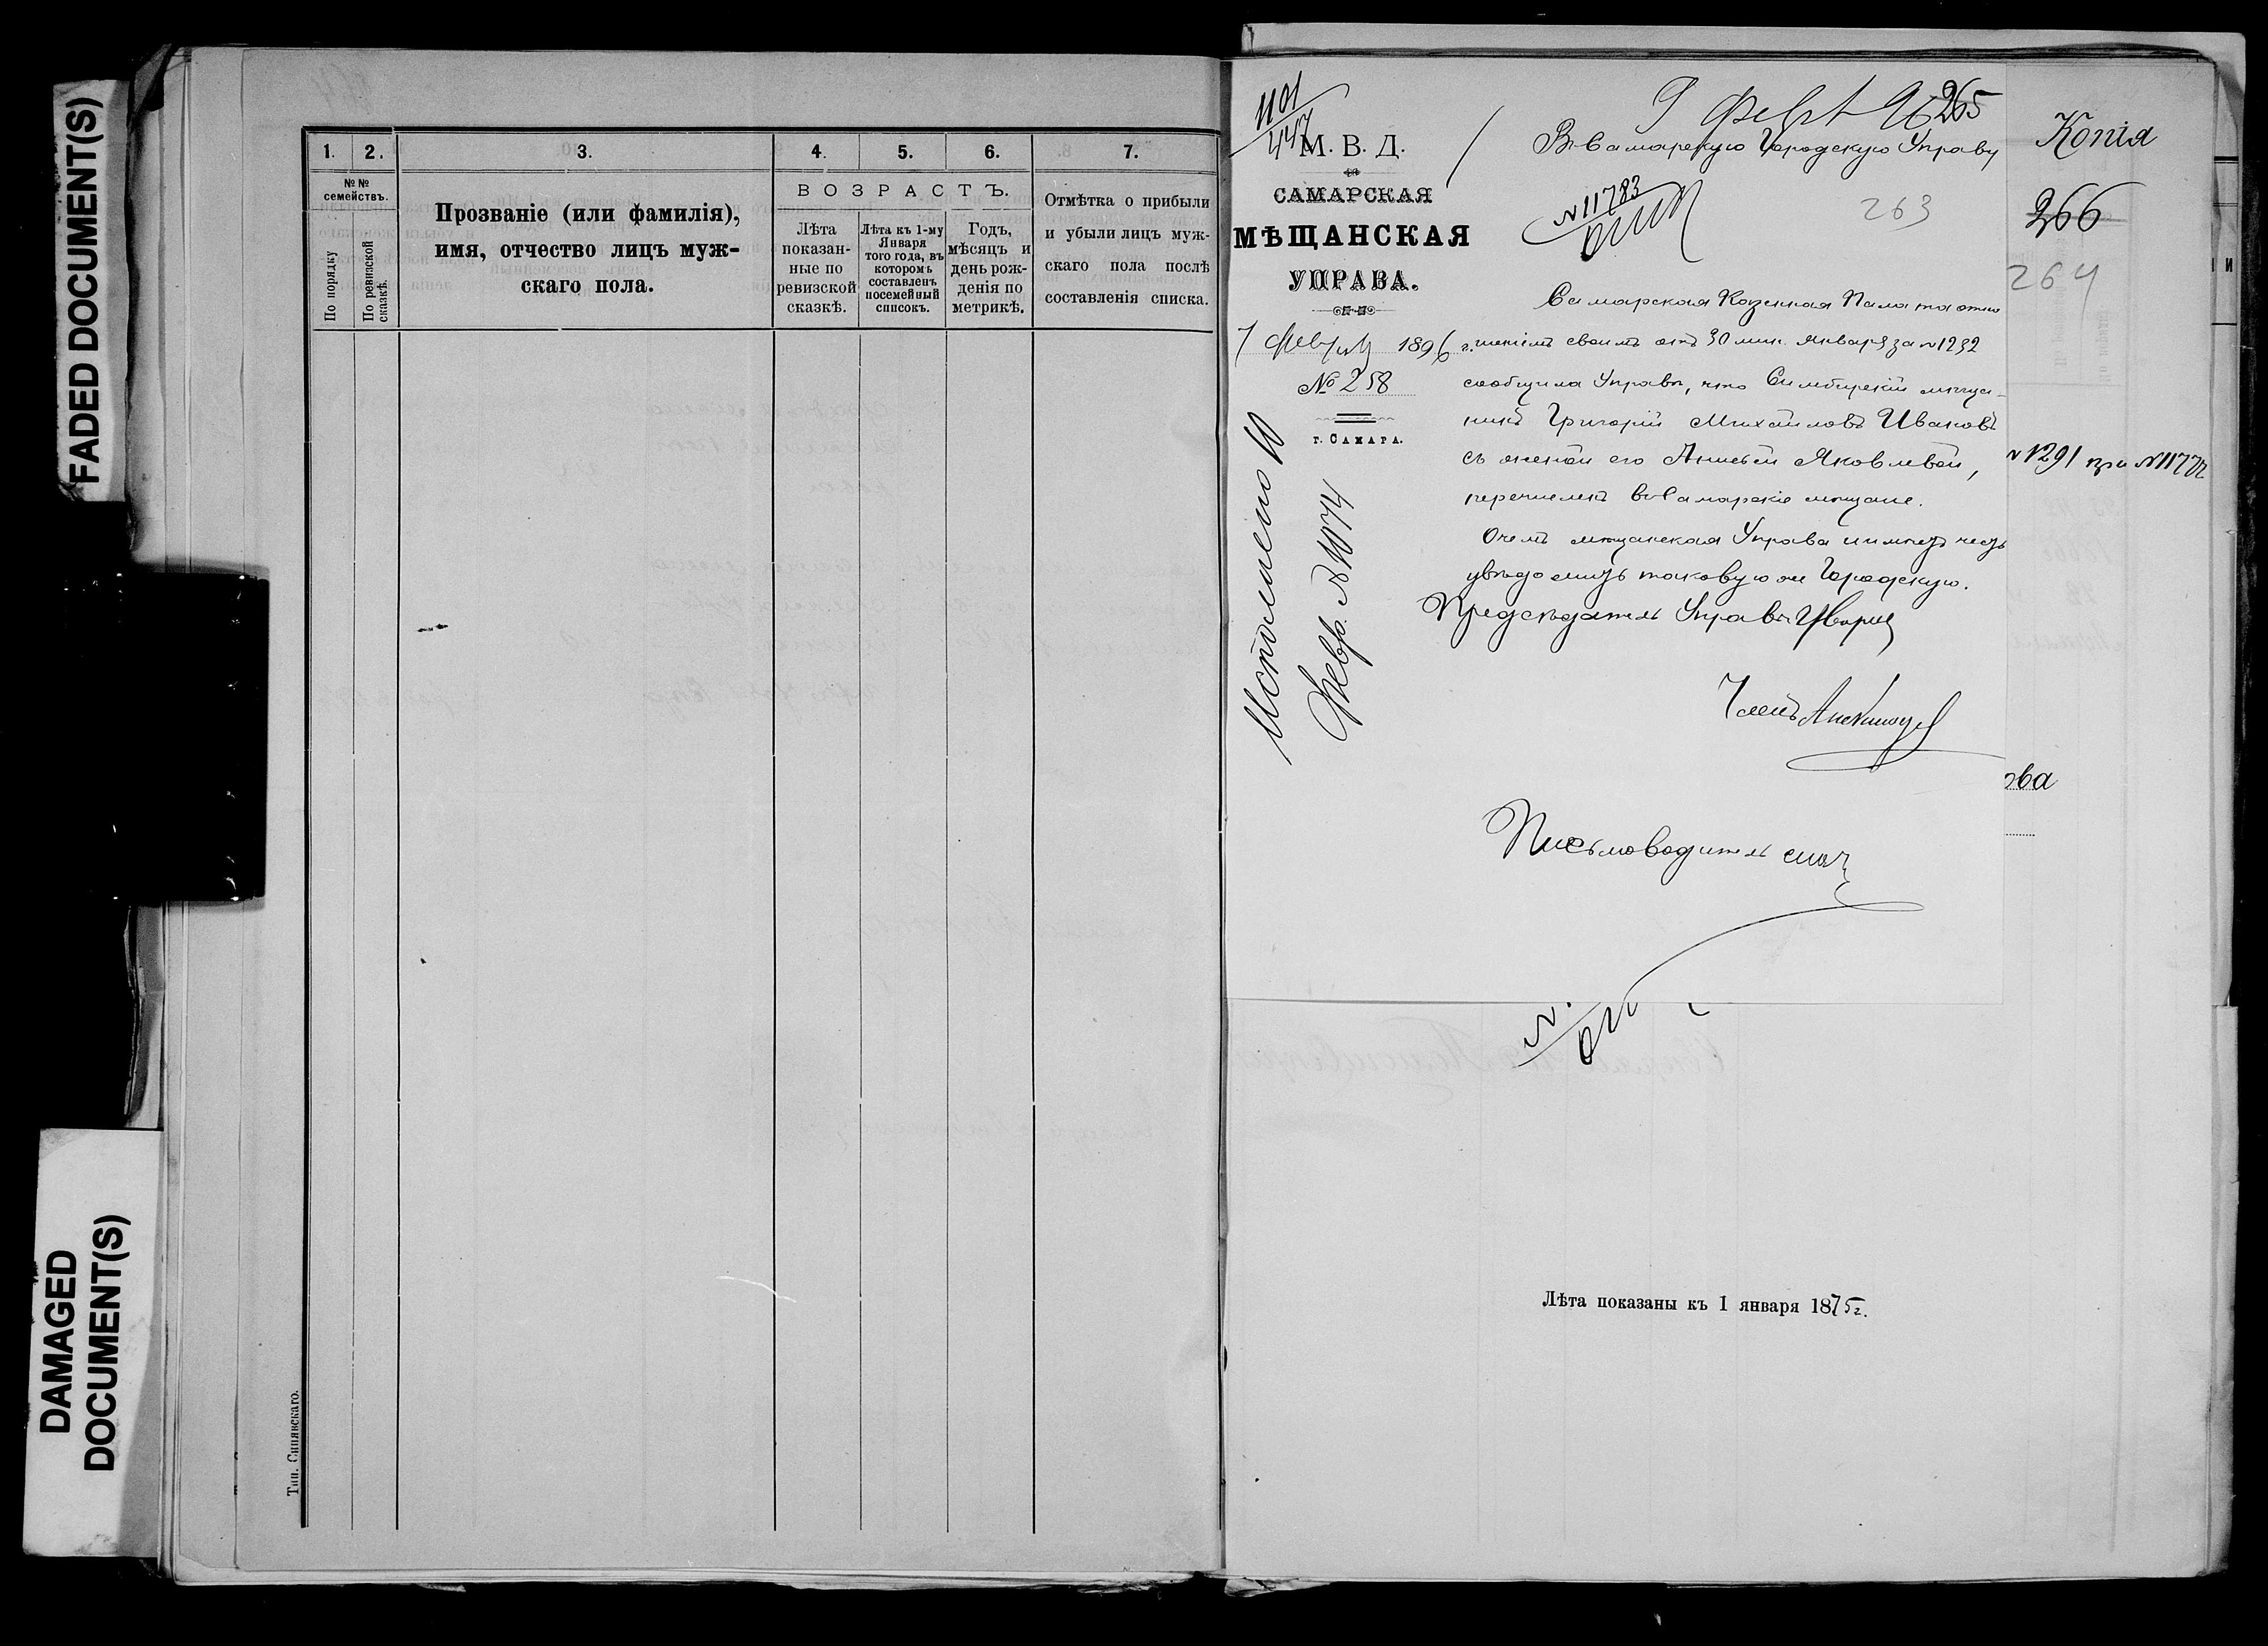 FADED DOCUMENT(S)
DAMAGED
DOCUMENT(S)
1. 2. 3. 4. 5. 6. 7.
№№
семействъ.
По порядку
По ревизской
сказкѣ.
Прозваніе (или фамилія),
имя, отчество лицъ муж-
скаго пола.
ВОЗРАСТЪ.
Лѣта
показан-
ные по
ревизской
сказкѣ.
Лѣта къ 1-му
Января
того года, въ
которомъ
составленъ
посемейный
списокъ.
Годъ,
мѣсяцъ и
день рож-
денія по
метрикѣ.
Отмѣтка о прибыли
и убыли лицъ муж-
скаго пола послѣ
составленія списка.
Тип. Синявскаго.
1101
447
9 февр 96
265
М. В. Д.
САМАРСКАЯ
МѢЩАНСКАЯ
УПРАВА.
7 февраля 1896 г.
№ 258
г. САМАРА.
Исполнено 10
Февр. № 1074
Въ Самарскую Городскую Управу
№ 11783
263
Самарская Казенная Палата отно
шеніемъ своимъ отъ 30 мин. Января за № 1292
сообщила Управѣ, что Симбирскій мѣща-
нинъ Григорій Михайловъ Ивановъ
съ женой его Анисьей Яковлевой,
перечисленъ въ Самарскіе мѣщане.
О чемъ мѣщанская Управа и имѣетъ честь
увѣдомить таковую же Городскую.
Предсѣдатель Управы
Членъ
Письмоводитель
Копія
266
264
№ 1291 при № 11772
ова
Лѣта показаны къ 1 января 1875 г.